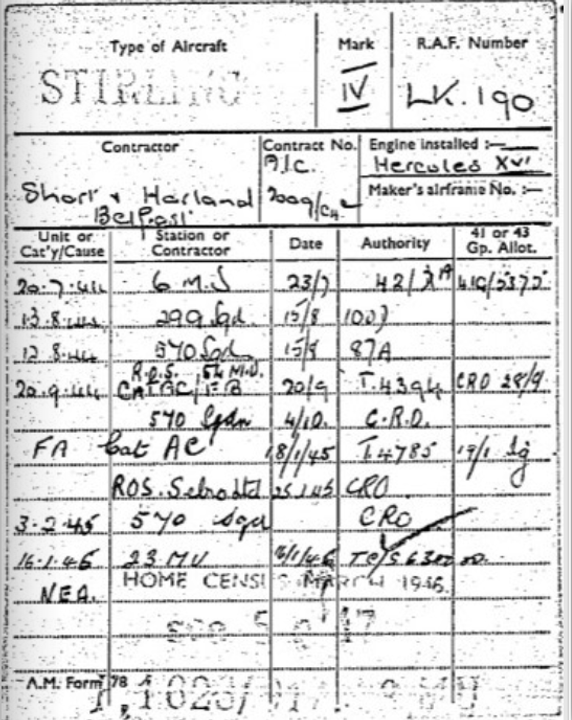 Type of Aircraft Mark R.A.F. Number
STIRLING IV LK.190
Contractor Contract No. Engine installed :—
A/c. Hercules XVI
Short & Harland 2009/C4 Maker's airframe No. :—
Belfast
Unit or Cat'y/Cause Station or Contractor Date Authority 41 or 43 Gp. Allot.
20.7.44 6 M.S 23/7 42/
13.8.44 299 Sqd. 15/8
12.8.44 570 Sqd. 15/8 87A
R.O.S. 54 M.U.
20.9.44 CAT AC/FB 20/9 T.4394 CRO 28/9
570 Sqdn 4/10. C.R.O.
FA Cat AC 18/1/45 T.4785 19/1
ROS. Sebro Ltd 25.1.45 CRO
3.2.45 570 Sqd CRO
16.1.46 23 MU 16/1/46
HOME CENSUS MARCH 1946.
N.E.A.
A.M. Form 78